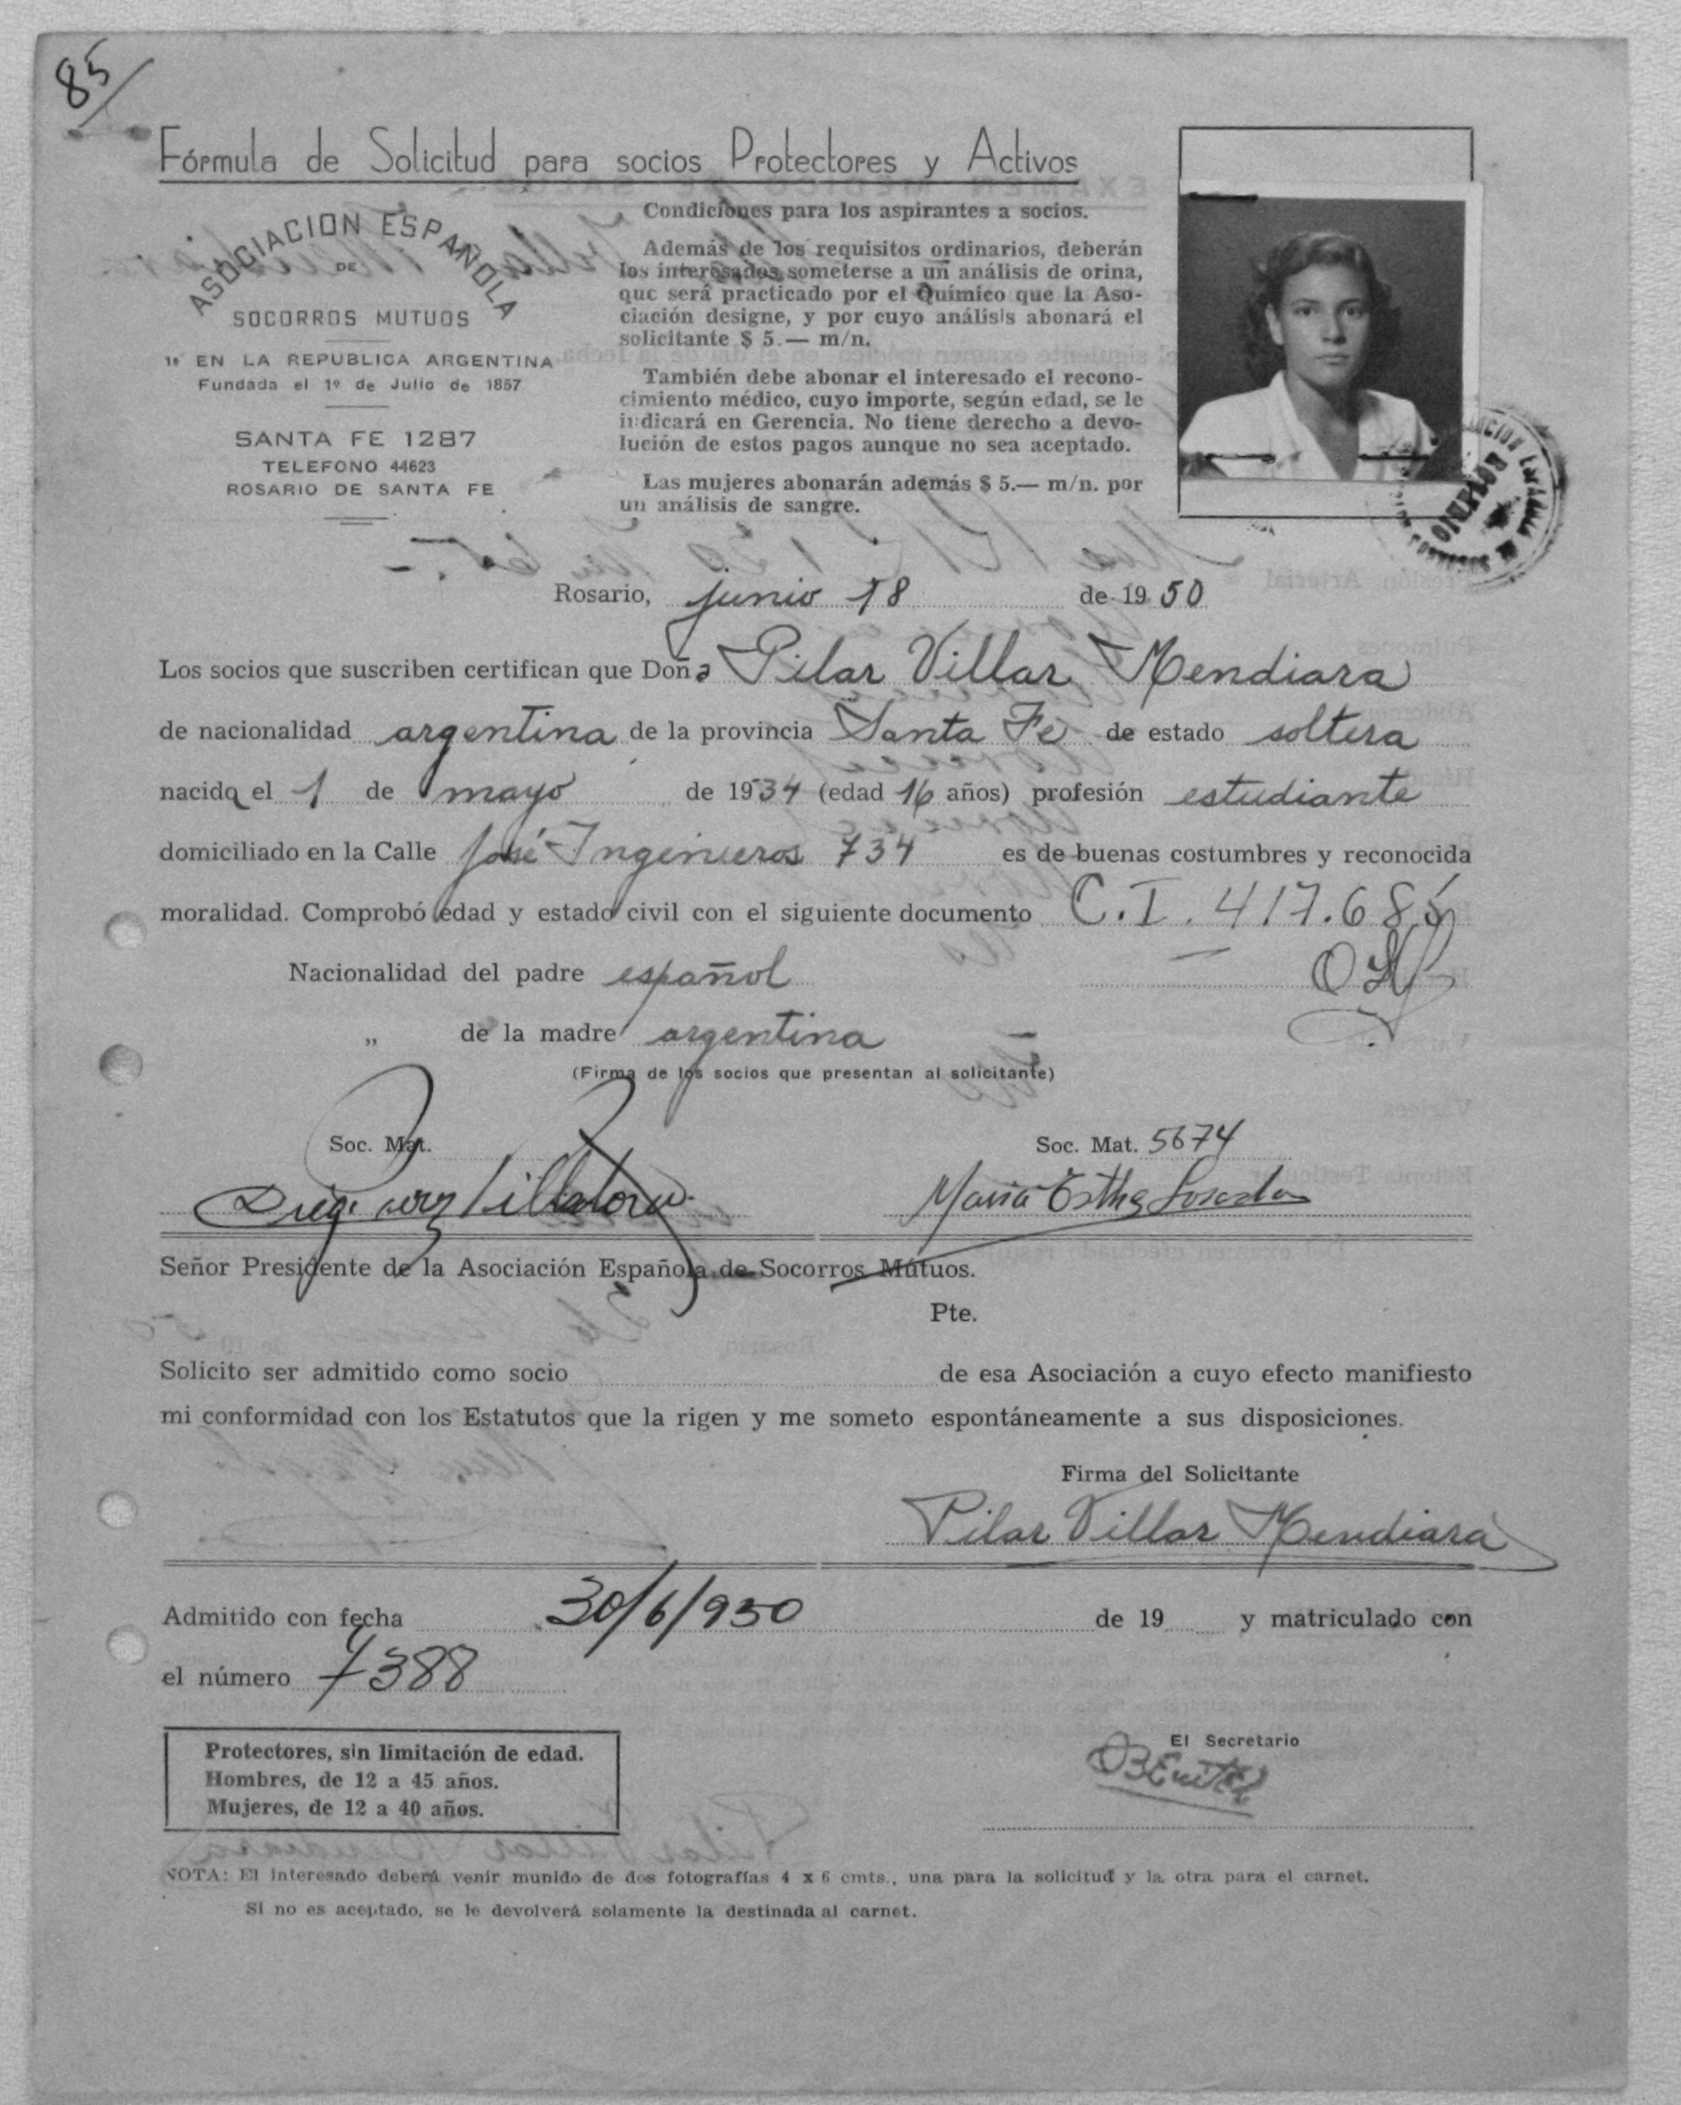 85
Fórmula de Solicitud para socios Protectores y Activos
ASOCIACION ESPAÑOLA
DE
SOCORROS MUTUOS
1ª EN LA REPUBLICA ARGENTINA
Fundada el 1º de Julio de 1857
SANTA FE 1287
TELEFONO 44623
ROSARIO DE SANTA FE
Condiciones para los aspirantes a socios.
Además de los requisitos ordinarios, deberán
los interesados someterse a un análisis de orina,
que será practicado por el Químico que la Aso-
ciación designe, y por cuyo análisis abonará el
solicitante $ 5.— m/n.
También debe abonar el interesado el recono-
cimiento médico, cuyo importe, según edad, se le
indicará en Gerencia. No tiene derecho a devo-
lución de estos pagos aunque no sea aceptado.
Las mujeres abonarán además $ 5.— m/n. por
un análisis de sangre.
ROSARIO
Rosario, junio 18 de 1950
Los socios que suscriben certifican que Doña Pilar Villar Mendiara
de nacionalidad argentina de la provincia Santa Fe de estado soltera
nacida el 1 de mayo de 1934 (edad 16 años) profesión estudiante
domiciliado en la Calle José Ingenieros 734 es de buenas costumbres y reconocida
moralidad. Comprobó edad y estado civil con el siguiente documento C.I. 417.685
Nacionalidad del padre español
„ de la madre argentina —
(Firma de los socios que presentan al solicitante)
Soc. Mat.
Soc. Mat. 5674
María Esther
Señor Presidente de la Asociación Española de Socorros Mútuos.
Pte.
Solicito ser admitido como socio de esa Asociación a cuyo efecto manifiesto
mi conformidad con los Estatutos que la rigen y me someto espontáneamente a sus disposiciones.
Firma del Solicitante
Pilar Villar Mendiara
Admitido con fecha 30/6/950 de 19 y matriculado con
el número 7388
Protectores, sin limitación de edad.
Hombres, de 12 a 45 años.
Mujeres, de 12 a 40 años.
El Secretario
NOTA: El interesado deberá venir munido de dos fotografías 4 x 6 cmts., una para la solicitud y la otra para el carnet.
Si no es aceptado, se le devolverá solamente la destinada al carnet.